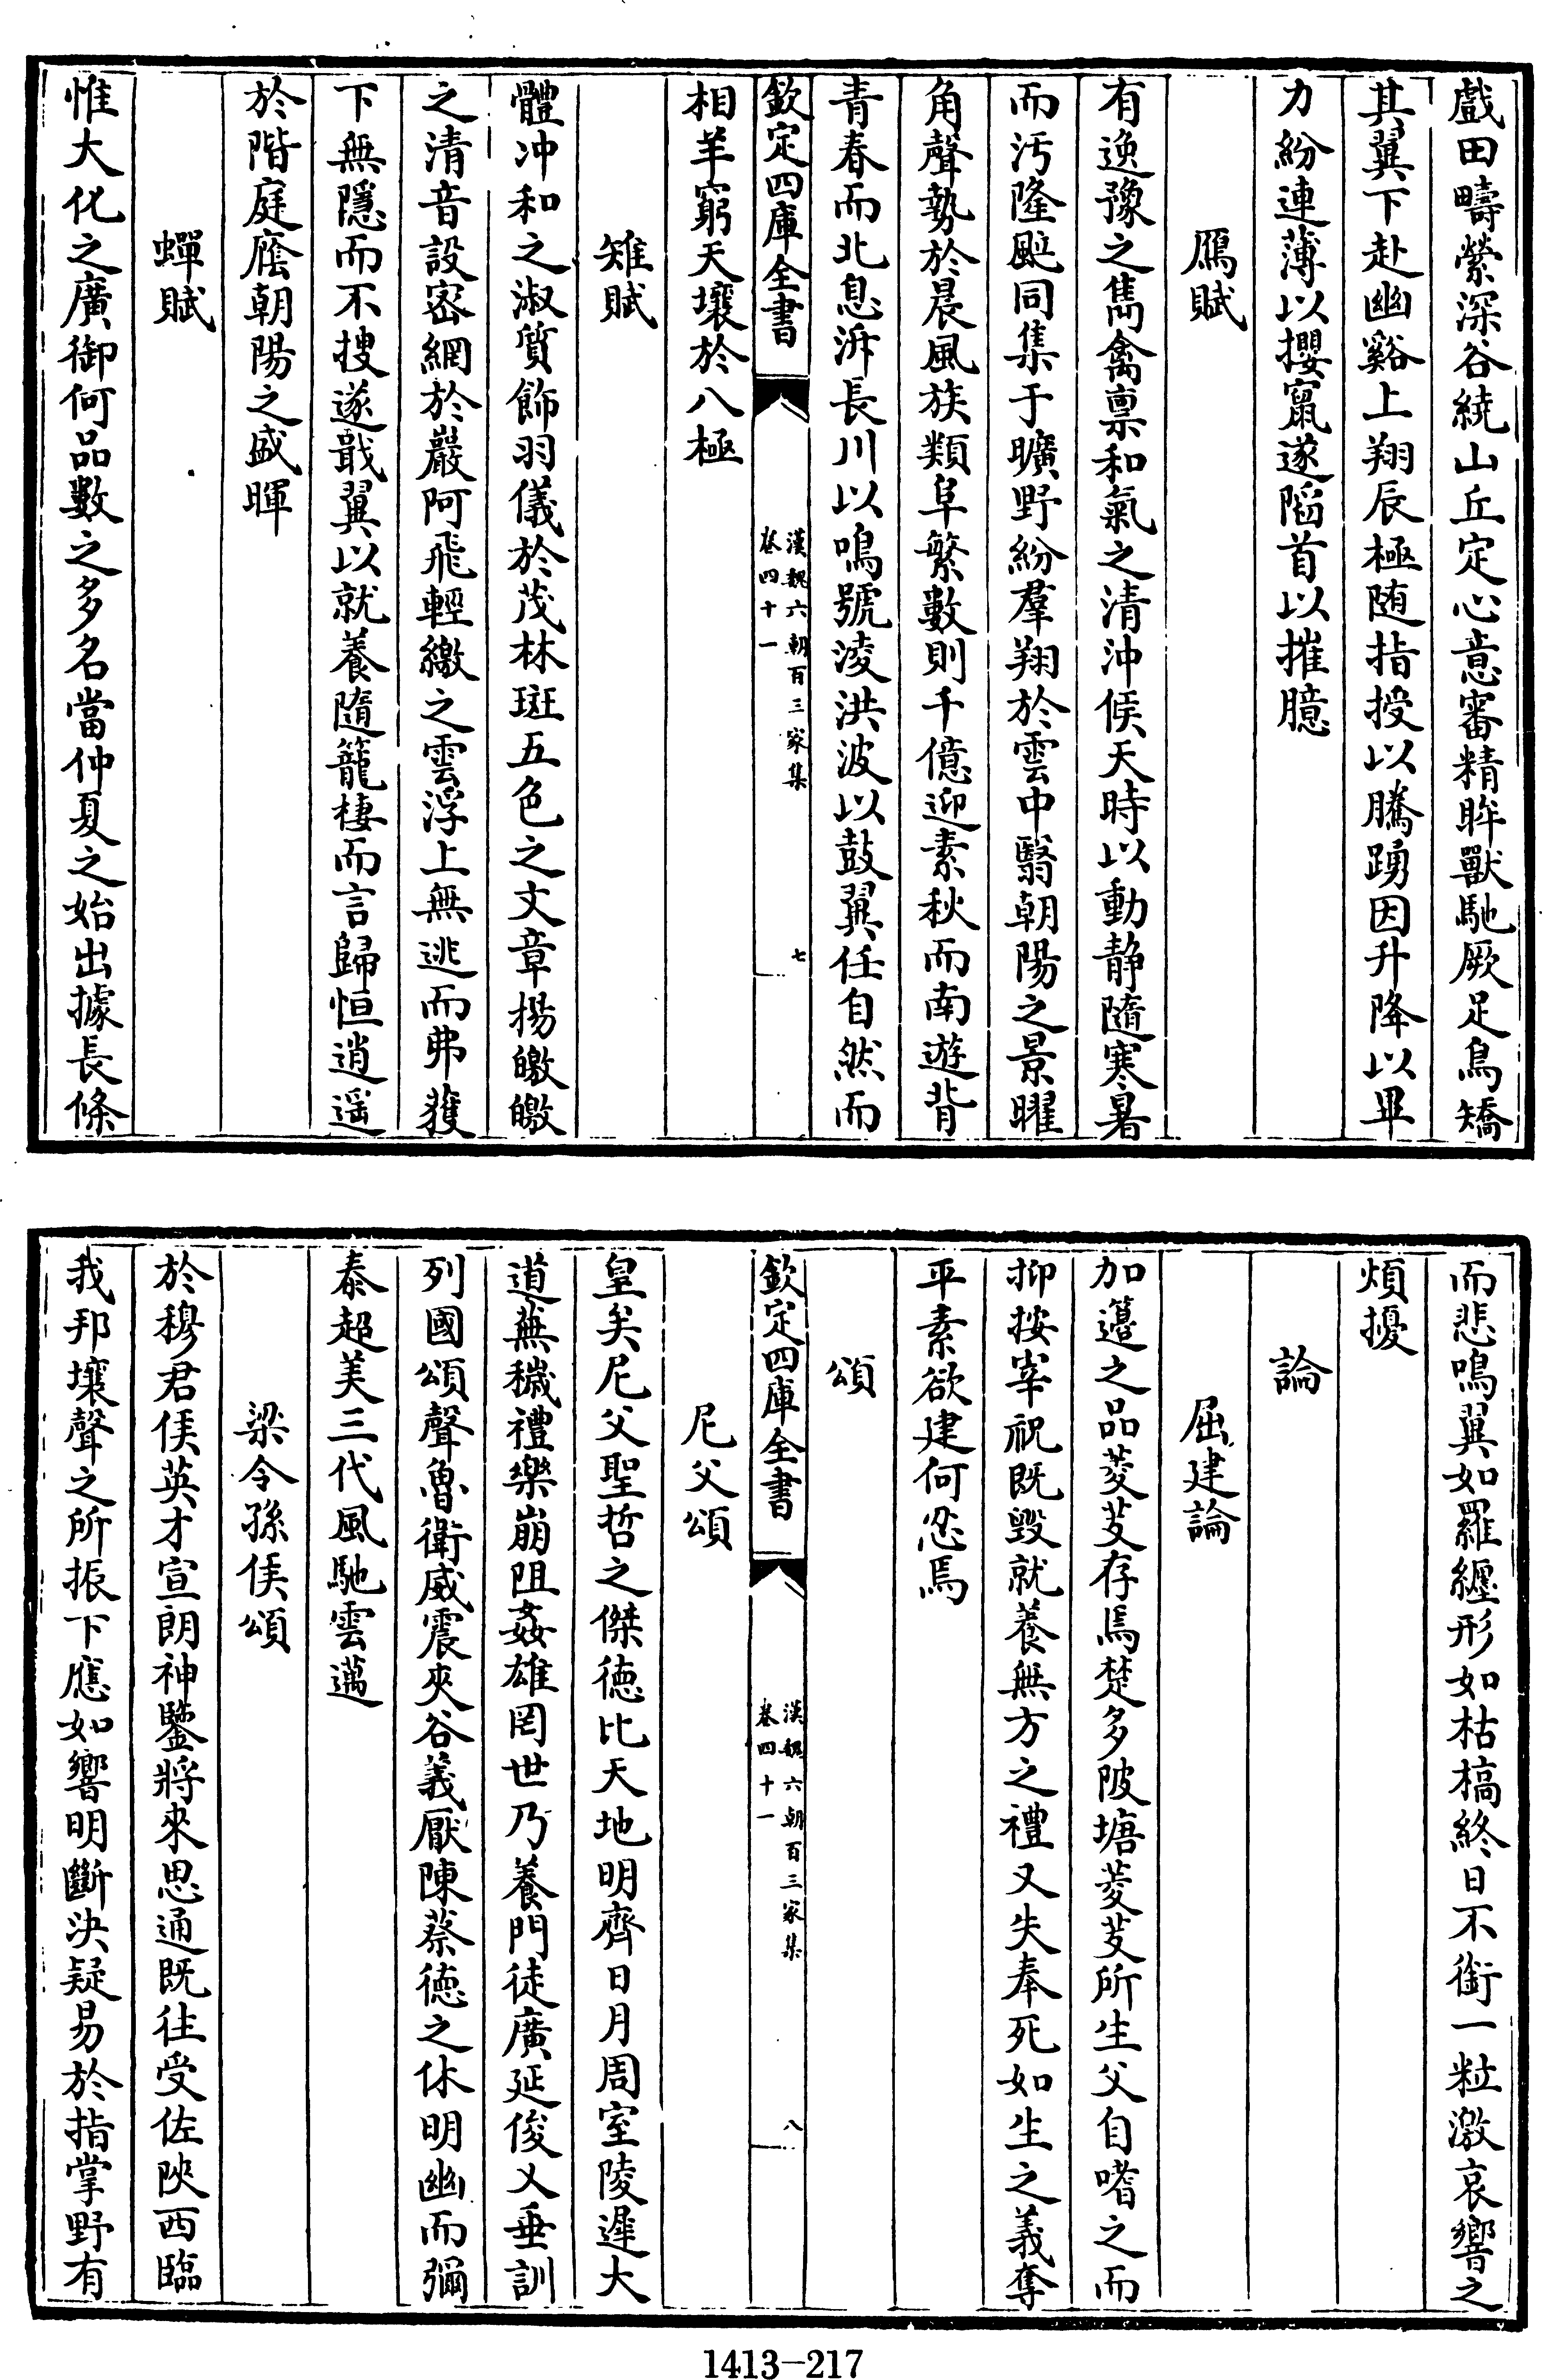 戲田疇縈深谷繞山丘定心意審精眸獸馳厥足鳥矯
其翼下赴幽谿上翔辰極随指授以騰踴因升降以畢
力紛連薄以攖窠遂陷首以摧臆
鴈賦
有逸豫之雋禽禀和氣之清沖候天時以動静隨寒暑
而汚隆颰同集于曠野紛羣翔於雲中翳朝陽之景曜
角聲勢於晨風族類阜繁數則千億迎素秋而南遊背
青春而北息泝長川以鳴號淩洪波以鼓翼任自然而
欽定四庫全書
漢魏六朝百三家集
卷四十一
七
相羊窮天壤於八極
雉賦
體冲和之淑質飾羽儀於茂林斑五色之文章揚皦皦
之清音設密網於嚴阿飛輕繳之雲浮上無逃而弗獲
下無隱而不搜遂戢翼以就養隨籠棲而言歸恒逍遥
於階庭廕朝陽之盛暉
蟬賦
惟大化之廣御何品數之多名當仲夏之始出據長條
而悲鳴翼如羅纒形如枯槁終日不銜一粒激哀響之
煩擾
論
屈建論
加籩之品菱芰存焉楚多陂塘菱芰所生父自嗜之而
抑按宰祝既毁就養無方之禮又失奉死如生之義奪
平素欲建何忍焉
頌
欽定四庫全書
漢魏六朝百三家集
卷四十一
八
尼父頌
皇矣尼父聖哲之傑德比天地明齊日月周室陵遲大
道蕪穢禮樂崩阻姦雄罔世乃養門徒廣延俊乂垂訓
列國頌聲魯衛威震夾谷義厭陳蔡德之休明幽而彌
泰超美三代風馳雲邁
梁令孫侯頌
於穆君侯英才宣朗神鑒將來思通既往受佐陜西臨
我邦壤聲之所振下應如響明斷決疑易於指掌野有
1413—217